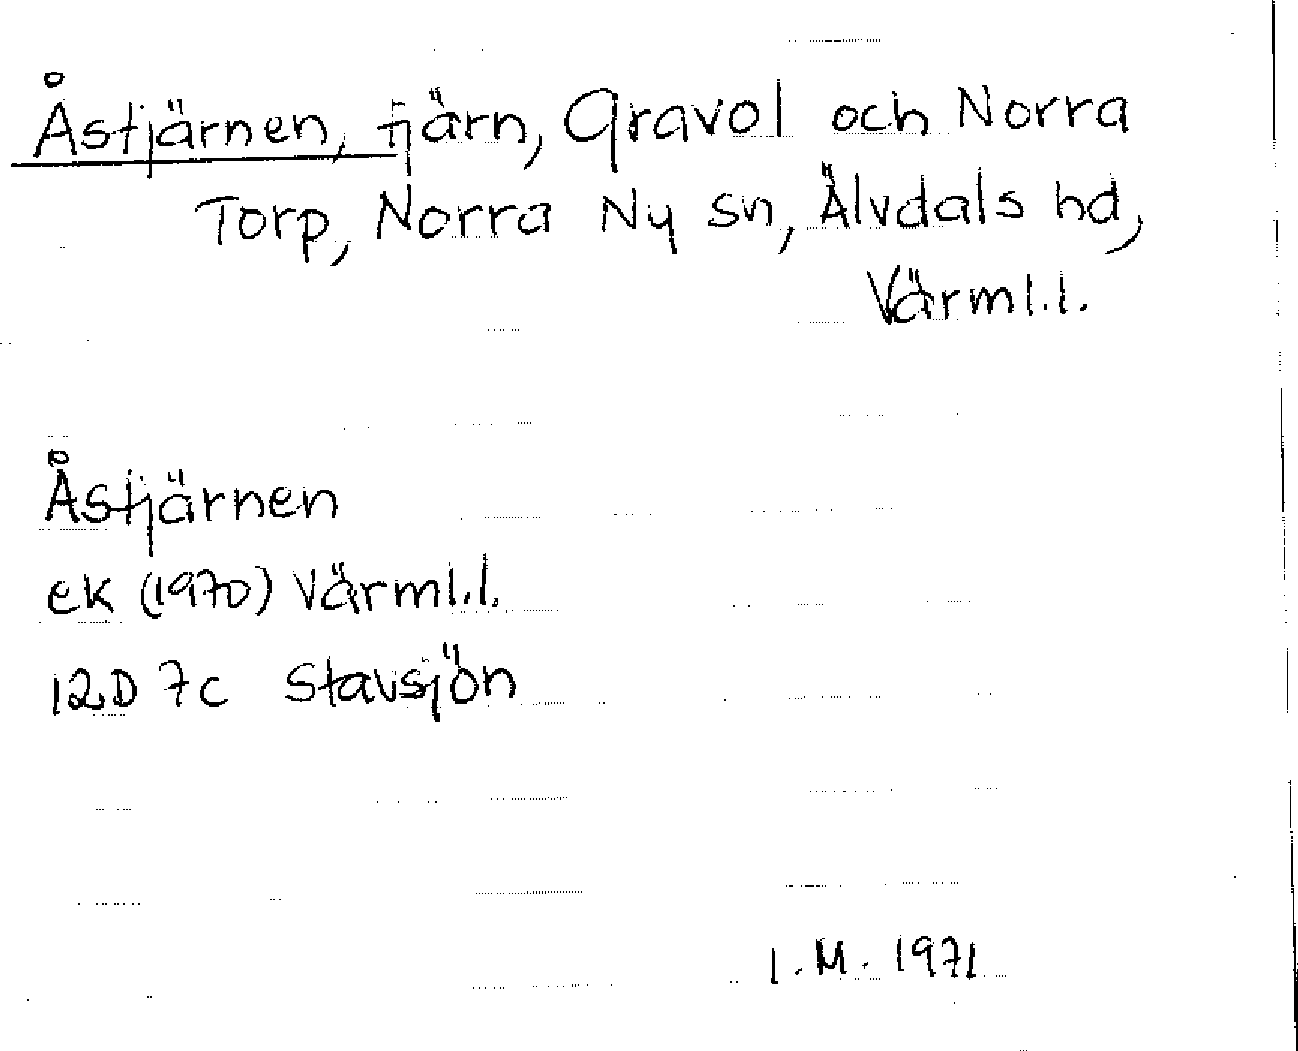 Åstjärnen, tjärn, Gravol och Norra
Torp, Norra Ny sn, Älvdals hd,
Värml.l.
Åstjärnen
ek (1970) Värml.l.
12D 7c Stavsjön
I.M. 1971